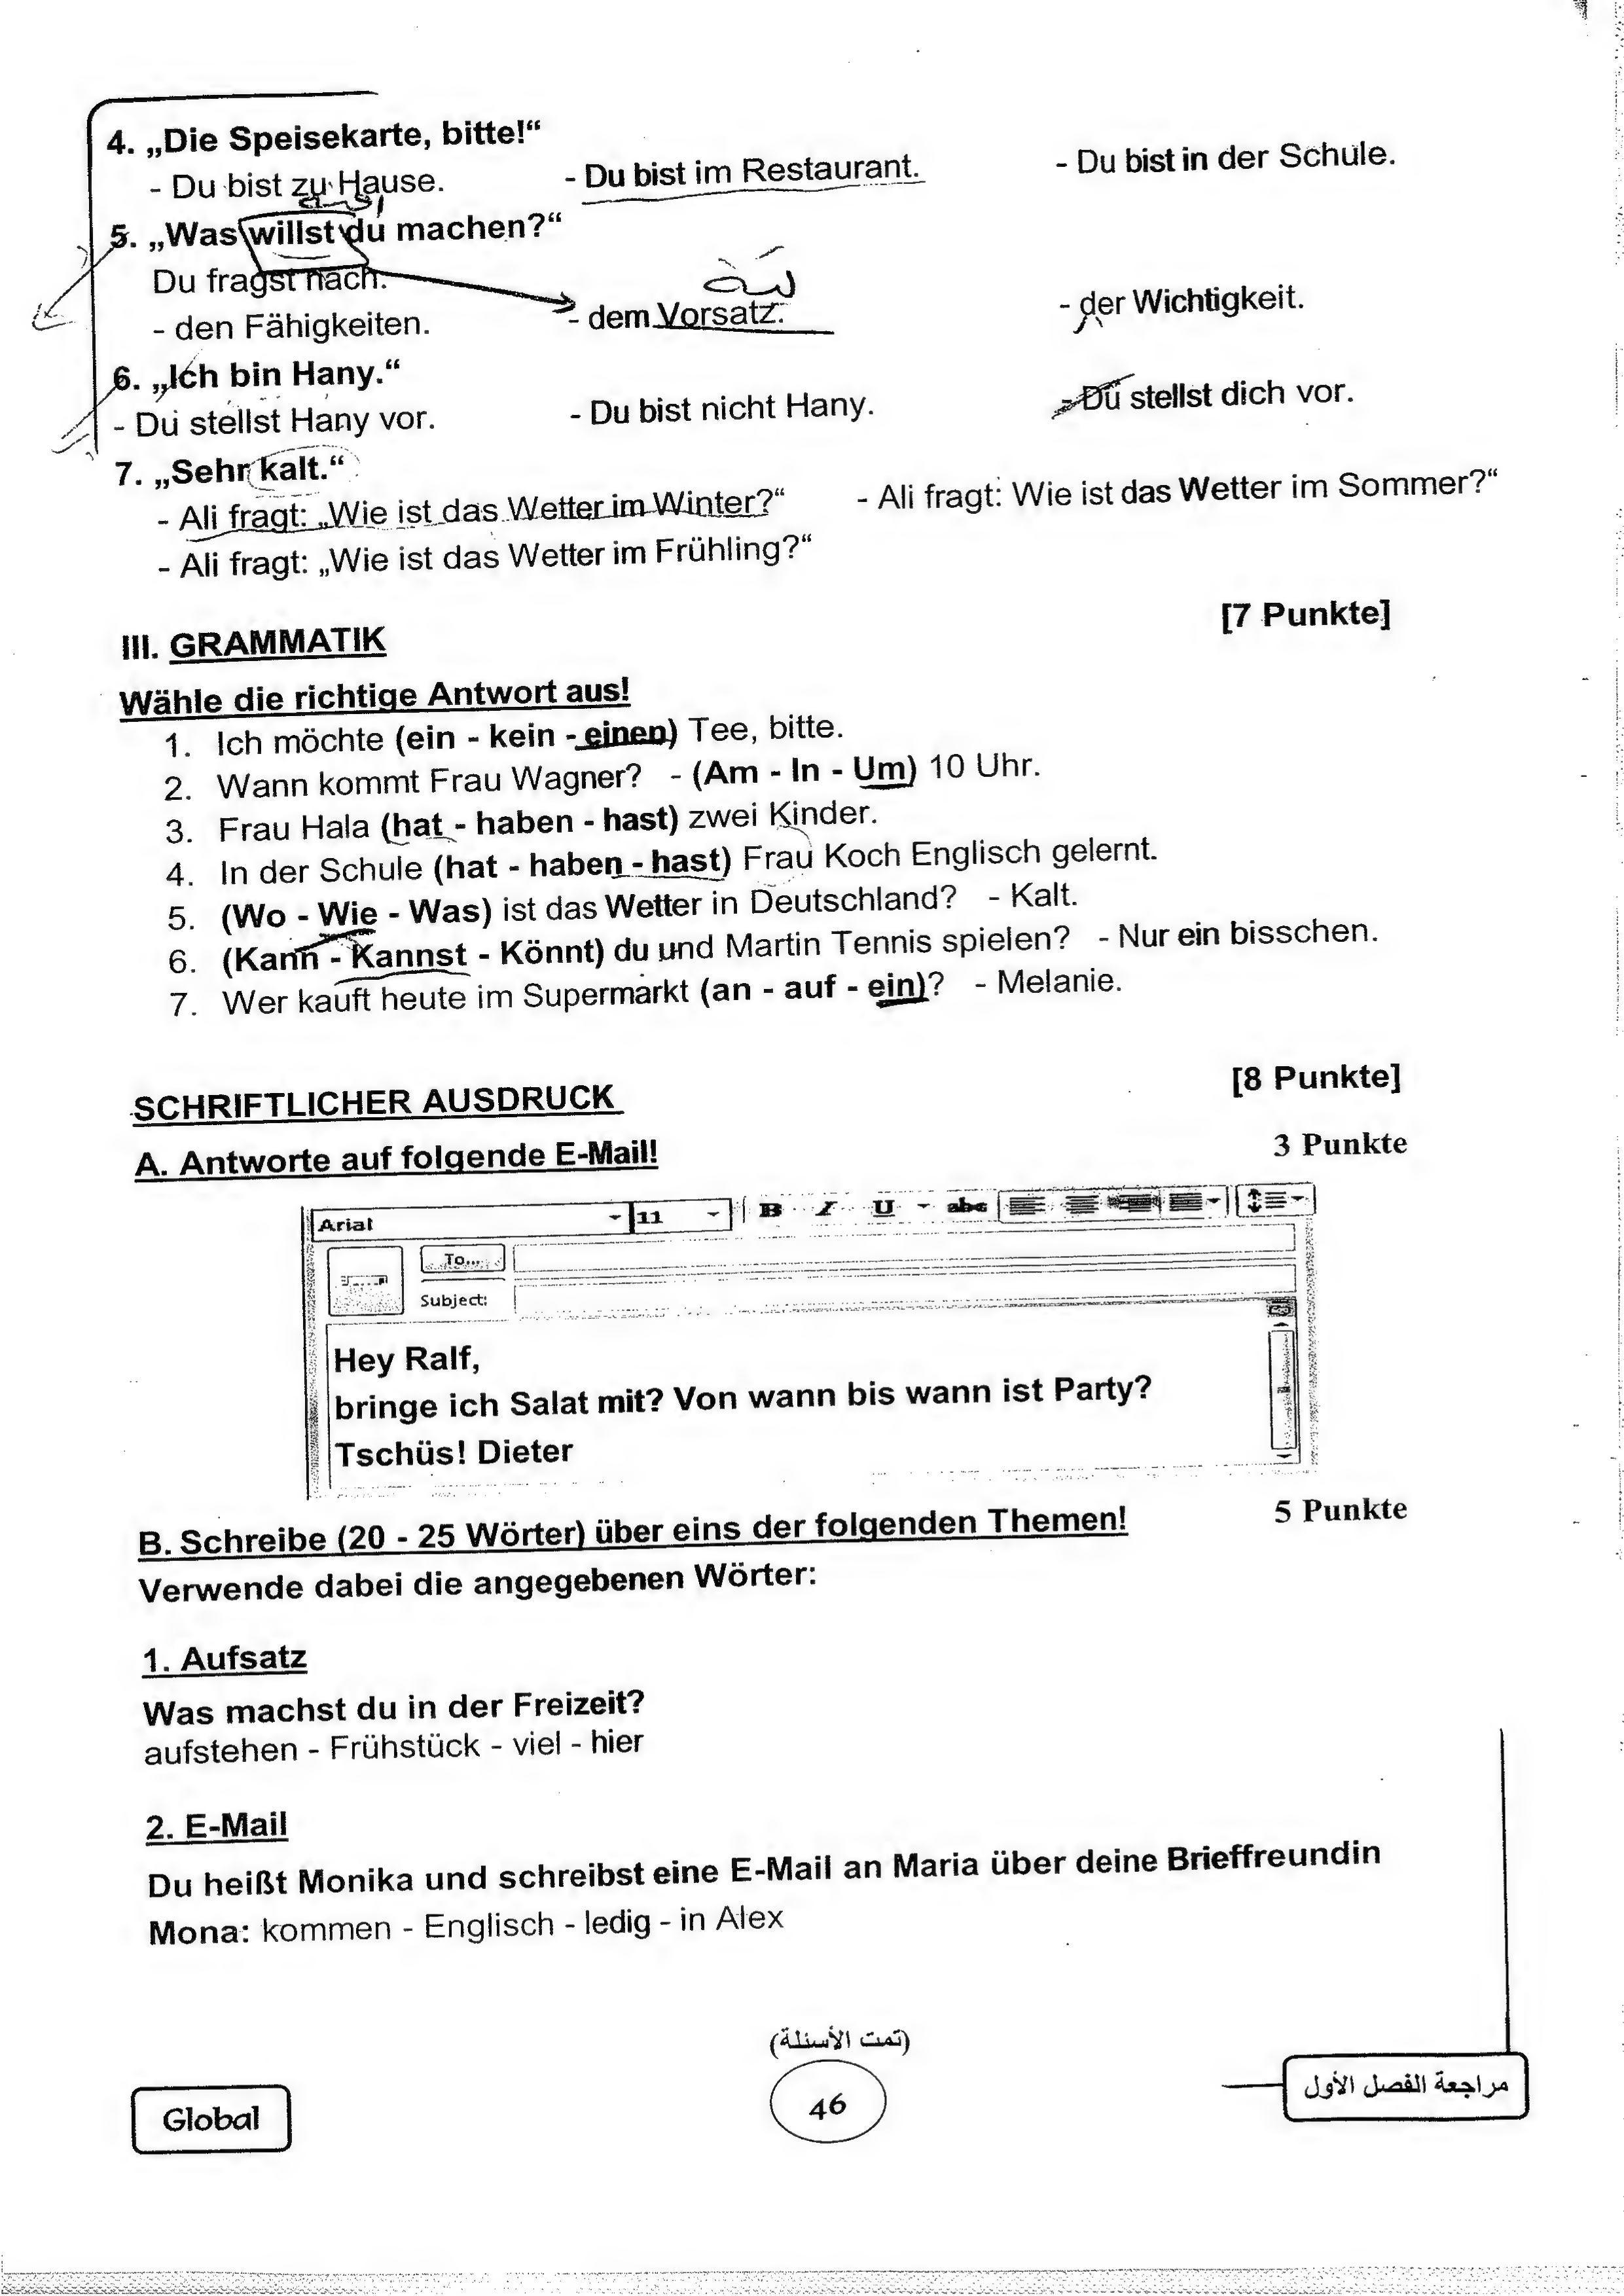 4. „Die Speisekarte, bitte!“
- Du bist zu Hause. - Du bist im Restaurant. - Du bist in der Schule.
5. „Was willst du machen?“
Du fragst nach:
نية
- den Fähigkeiten. - dem Vorsatz. - der Wichtigkeit.
6. „Ich bin Hany.“
- Du stellst Hany vor. - Du bist nicht Hany. - Du stellst dich vor.
7. „Sehr kalt.“
- Ali fragt: „Wie ist das Wetter im Winter?“ - Ali fragt: Wie ist das Wetter im Sommer?“
- Ali fragt: „Wie ist das Wetter im Frühling?“
III. GRAMMATIK [7 Punkte]
Wähle die richtige Antwort aus!
1. Ich möchte (ein - kein - einen) Tee, bitte.
2. Wann kommt Frau Wagner? - (Am - In - Um) 10 Uhr.
3. Frau Hala (hat - haben - hast) zwei Kinder.
4. In der Schule (hat - haben - hast) Frau Koch Englisch gelernt.
5. (Wo - Wie - Was) ist das Wetter in Deutschland? - Kalt.
6. (Kann - Kannst - Könnt) du und Martin Tennis spielen? - Nur ein bisschen.
7. Wer kauft heute im Supermarkt (an - auf - ein)? - Melanie.
SCHRIFTLICHER AUSDRUCK [8 Punkte]
A. Antworte auf folgende E-Mail! 3 Punkte
Arial 11 B I U abc
To...
Subject:
Hey Ralf,
bringe ich Salat mit? Von wann bis wann ist Party?
Tschüs! Dieter
B. Schreibe (20 - 25 Wörter) über eins der folgenden Themen! 5 Punkte
Verwende dabei die angegebenen Wörter:
1. Aufsatz
Was machst du in der Freizeit?
aufstehen - Frühstück - viel - hier
2. E-Mail
Du heißt Monika und schreibst eine E-Mail an Maria über deine Brieffreundin
Mona: kommen - Englisch - ledig - in Alex
(تمت الأسئلة)
Global 46 مراجعة الفصل الأول